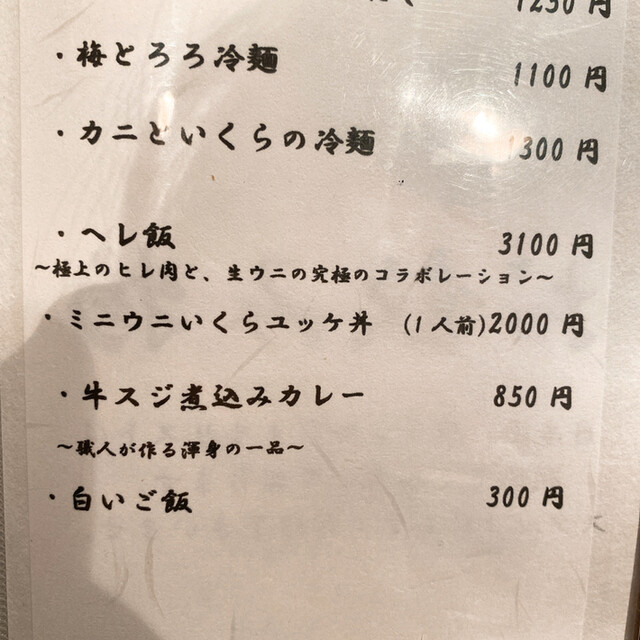 1250 円
・梅とろろ冷麺 1100 円
・カニといくらの冷麺 1300 円
・ヘレ飯 3100 円
～極上のヒレ肉と、生ウニの究極のコラボレーション～
・ミニウニいくらユッケ丼 (1人前)2000 円
・牛スジ煮込みカレー 850 円
～職人が作る渾身の一品～
・白いご飯 300 円